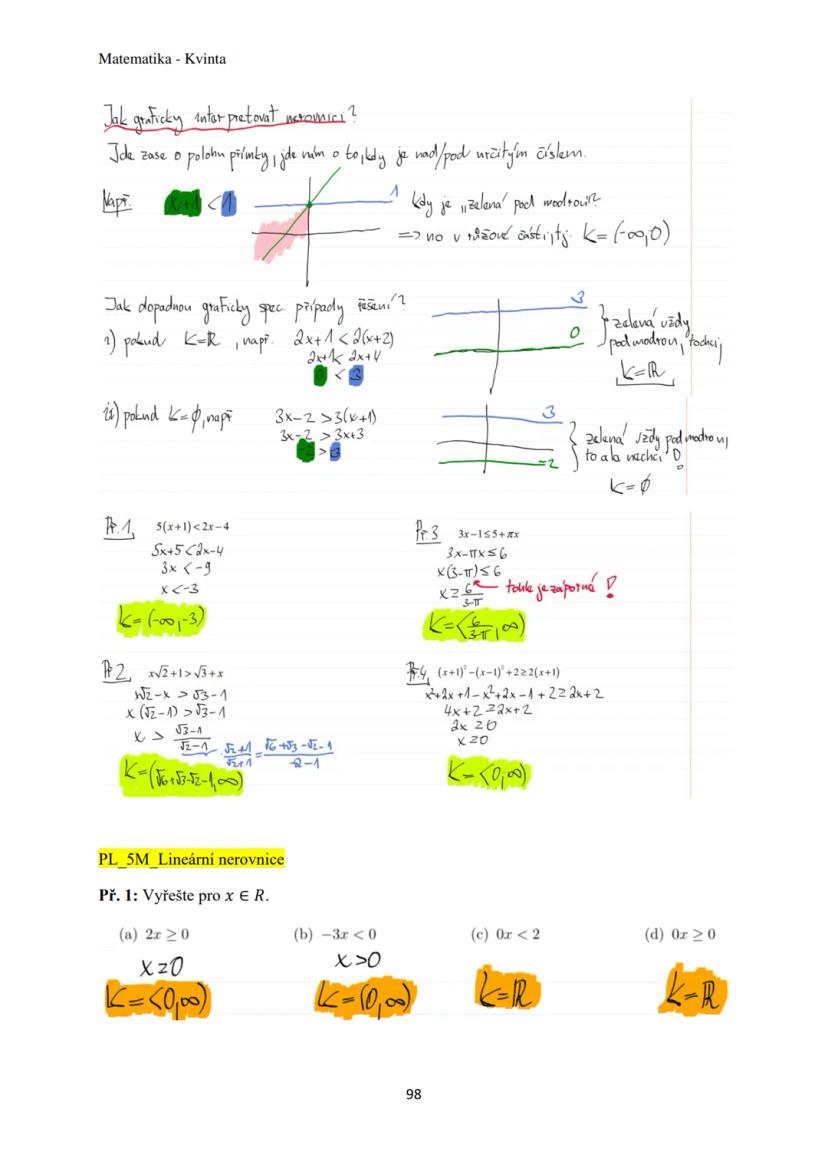 Matematika - Kvinta
Jak graficky interpretovat nerovnici?
Jde zase o polohu přímky, jde nám o to, kdy je nad/pod určitým číslem.
Např. x+1 < 1
1
Kdy je „zelená“ pod modrou?
=> no v růžové části, tj. K=(-∞,0)
Jak dopadnou graficky spec. případy řešení?
i) pokud K=ℝ, např. 2x+1<2(x+2)
2x+1<2x+4
< 3
3
0
zelená vždy
pod modrou, to chci,
K=ℝ
ii) pokud K=∅, např 3x-2>3(x+1)
3x-2>3x+3
-2 > 3
3
-2
zelená vždy pod modrou,
to ale nechci!
K=∅
Př.1, 5(x+1)<2x−4
5x+5<2x-4
3x<-9
x<-3
K=(-∞,-3)
Př.3 3x−1≤5+πx
3x-πx≤6
x(3-π)≤6
x≥6/(3-π) tohle je záporné!
K=<6/(3-π),∞)
Př.2, x√2+1>√3+x
x√2-x>√3-1
x(√2-1)>√3-1
x>(√3-1)/(√2-1) · (√2+1)/(√2+1) = (√6+√3-√2-1)/(2-1)
K=(√6+√3-√2-1,∞)
Př.4, (x+1)²−(x−1)²+2≥2(x+1)
x²+2x+1-x²+2x-1+2≥2x+2
4x+2≥2x+2
2x≥0
x≥0
K=<0,∞)
PL_5M_Lineární nerovnice
Př. 1: Vyřešte pro x ∈ R.
(a) 2x ≥ 0 (b) −3x < 0 (c) 0x < 2 (d) 0x ≥ 0
x≥0 x>0
K=<0,∞) K=(0,∞) K=ℝ K=ℝ
98